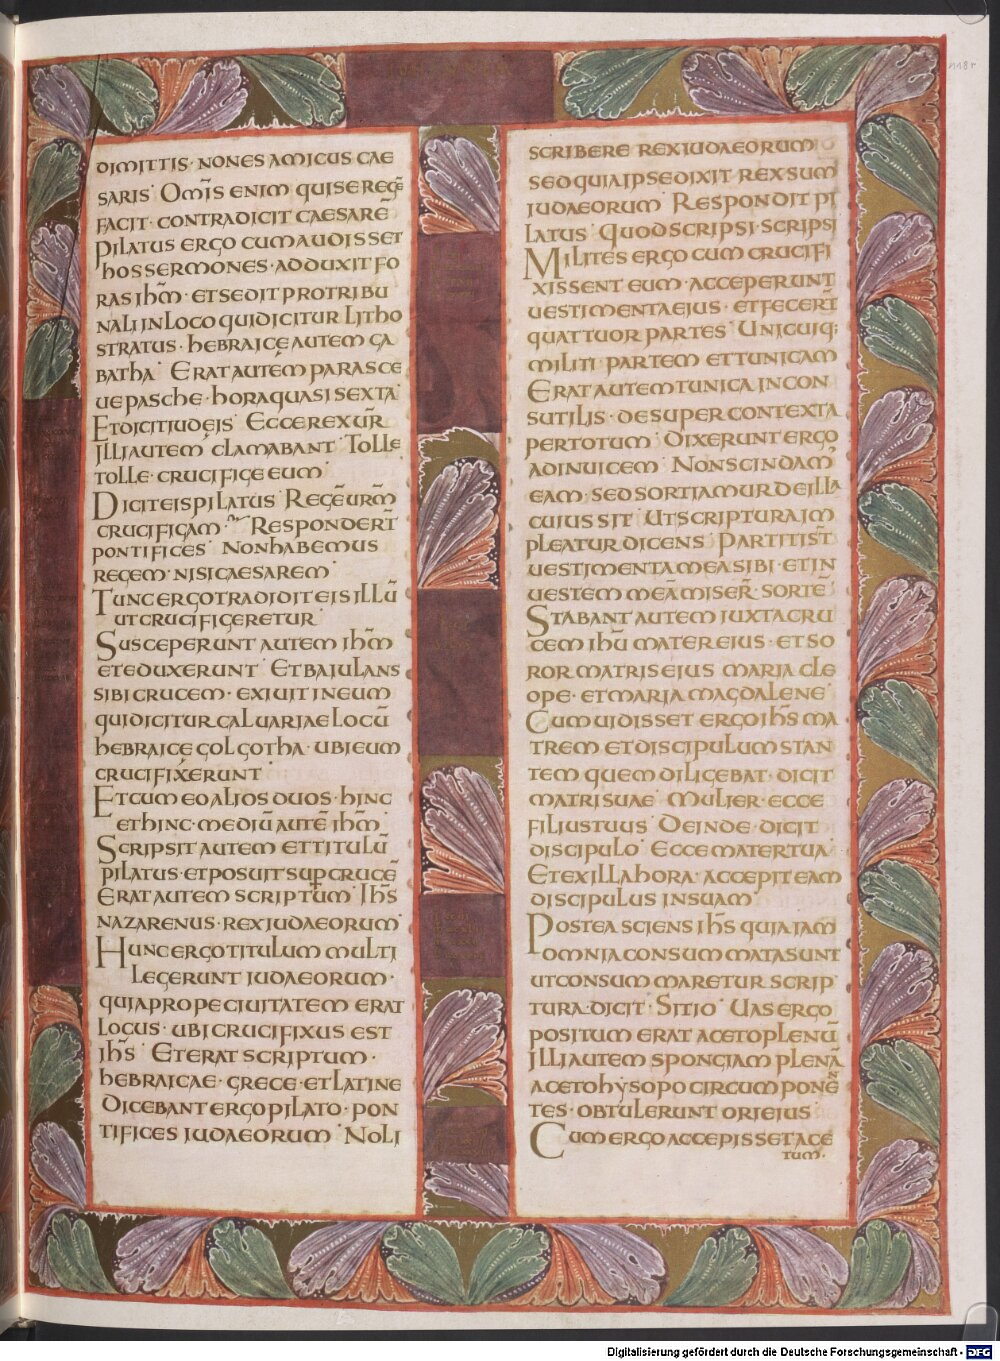 DIMITTIS · NON ES AMICUS CAE
SARIS · OM̄IS ENIM QUI SE REGĒ
FACIT · CONTRADICIT CAESARĒ
PILATUS ERGO CUM AUDISSET
HOS SERMONES · ADDUXIT FO
RAS IHM̄ · ET SEDIT PRO TRIBU
NALI IN LOCO QUI DICITUR LITHO
STRATUS · HEBRAICE AUTEM GA
BATHA · ERAT AUTEM PARASCE
UE PASCHE · HORA QUASI SEXTA
ET DICIT IUDEIS · ECCE REX UR̄
ILLI AUTEM CLAMABANT · TOLLE
TOLLE · CRUCIFIGE EUM ·
DICIT EIS PILATUS · REGĒ URM̄
CRUCIFIGAM · RESPONDERT̄
PONTIFICES · NON HABEMUS
REGEM · NISI CAESAREM ·
TUNC ERGO TRADIDIT EIS ILLŪ
UT CRUCIFIGERETUR
SUSCEPERUNT AUTEM IHM̄
ET EDUXERUNT · ET BAJULANS
SIBI CRUCEM · EXIUIT IN EUM
QUI DICITUR CALUARIAE LOCŪ
HEBRAICE GOLGOTHA · UBI EUM
CRUCIFIXERUNT ·
ET CUM EO ALIOS DUOS · HINC
ET HINC · MEDIŪ AUTĒ IHM̄ ·
SCRIPSIT AUTEM ET TITULŪ
PILATUS · ET POSUIT SUP CRUCĒ
ERAT AUTEM SCRIPTUM · IHS̄
NAZARENUS · REX IUDAEORUM ·
HUNC ERGO TITULUM MULTI
LEGERUNT IUDAEORUM ·
QUIA PROPE CIUITATEM ERAT
LOCUS · UBI CRUCIFIXUS EST
IHS̄ · ET ERAT SCRIPTUM ·
HEBRAICAE · GRECE · ET LATINE
DICEBANT ERGO PILATO · PON
TIFICES IUDAEORUM · NOLI
SCRIBERE REX IUDAEORUM
SED QUIA IPSE DIXIT REX SUM
IUDAEORUM · RESPONDIT PI
LATUS · QUOD SCRIPSI · SCRIPSI
MILITES ERGO CUM CRUCIFI
XISSENT EUM · ACCEPERUNT
UESTIMENTA EIUS · ET FECERT̄
QUATTUOR PARTES · UNICUIQ;
MILITI PARTEM ET TUNICAM
ERAT AUTEM TUNICA INCON
SUTILIS · DESUPER CONTEXTA
PER TOTUM · DIXERUNT ERGO
AD INUICEM · NON SCINDAM'
EAM · SED SORTIAMUR DE ILLA
CUIUS SIT · UT SCRIPTURA IM
PLEATUR DICENS · PARTITI ST̄
UESTIMENTA MEA SIBI · ET IN
UESTĒM MEĀ MISER̄ · SORTĒ ·
STABANT AUTEM IUXTA CRU
CEM IHŪ MATER EIUS · ET SO
ROR MATRIS EIUS MARIA CLE
OPE · ET MARIA MAGDALENE ·
CUM UIDISSET ERGO IHS̄ MA
TREM ET DISCIPULUM STAN
TEM QUEM DILIGEBAT · DICIT
MATRI SUAE · MULIER · ECCE
FILIUS TUUS · DEINDE · DICIT
DISCIPULO · ECCE MATER TUA ·
ET EX ILLA HORA · ACCEPIT EAM
DISCIPULUS IN SUAM ·
POSTEA SCIENS IHS̄ QUIA IAM
OMNIA CONSUMMATA SUNT
UT CONSUMMARETUR SCRIP
TURA · DICIT · SITIO · UAS ERGO
POSITUM ERAT ACETO PLENŪ
ILLI AUTEM SPONGIAM PLENĀ
ACETO HYSOPO CIRCUMPONEN
TES · OBTULERUNT ORI EIUS ·
CUM ERGO ACCEPISSET ACE
TUM ·
118r
Digitalisierung gefördert durch die Deutsche Forschungsgemeinschaft - DFG